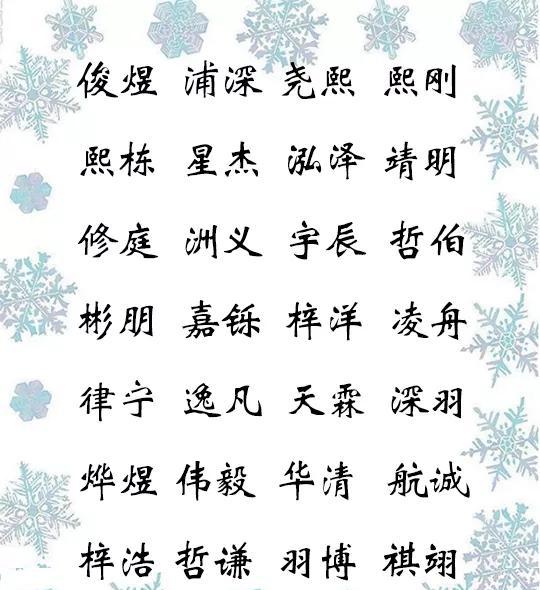 俊煜 浦深 尧熙 熙刚
熙栋 星杰 泓泽 靖明
修庭 洲义 宇辰 哲伯
彬朋 嘉铄 梓洋 凌舟
律宁 逸凡 天霖 深羽
烨煜 伟毅 华清 航诚
梓浩 哲谦 羽博 祺翊